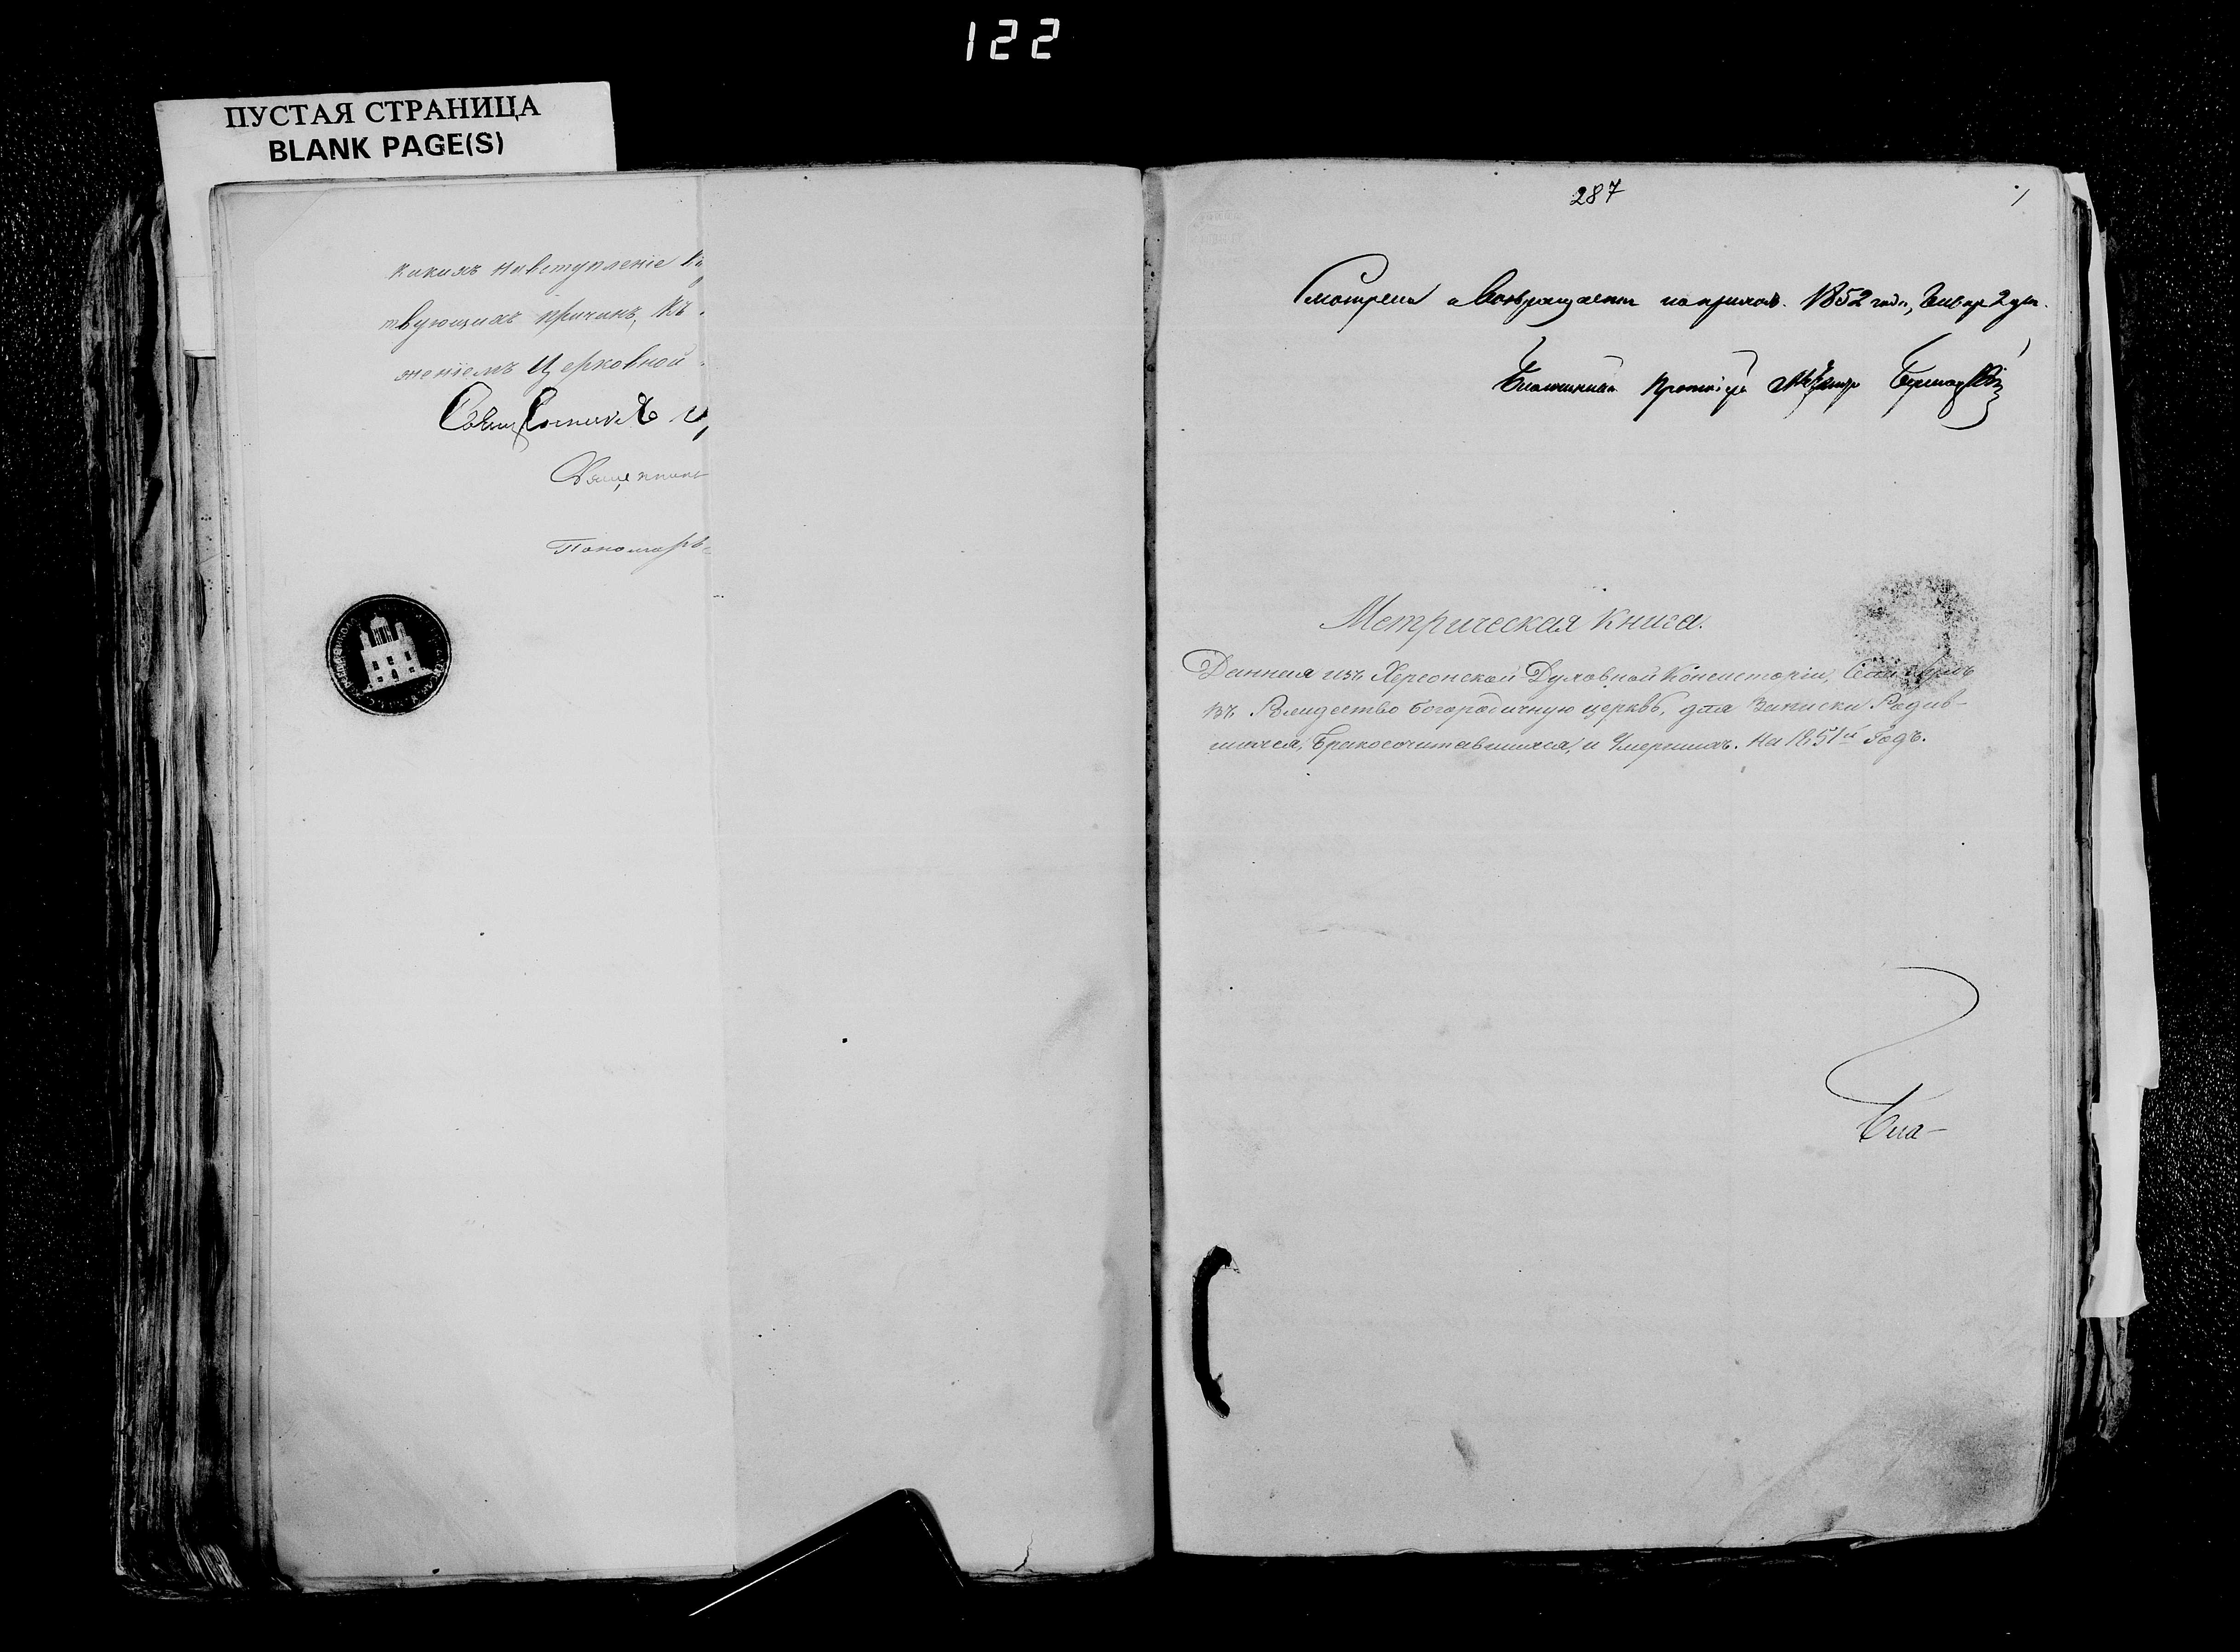 122
ПУСТАЯ СТРАНИЦА
BLANK PAGE(S)
какихъ на вступленіе
твующихъ причинъ, къ
женіемъ Церковной
Священникъ
Священникъ
Пономарь
287
1
Смотрелъ и возвращаетъ 1852 года, Января 2 дня.
Благочинный Протоіерей
Метрическая Книга.
Данная изъ Херсонской Духовной Консисторіи,
въ Рождество Богородичную церковь, для Записки Родив-
шихся, Бракосочитавшихся, и Умершихъ. На 1851й Годъ.
Бла-